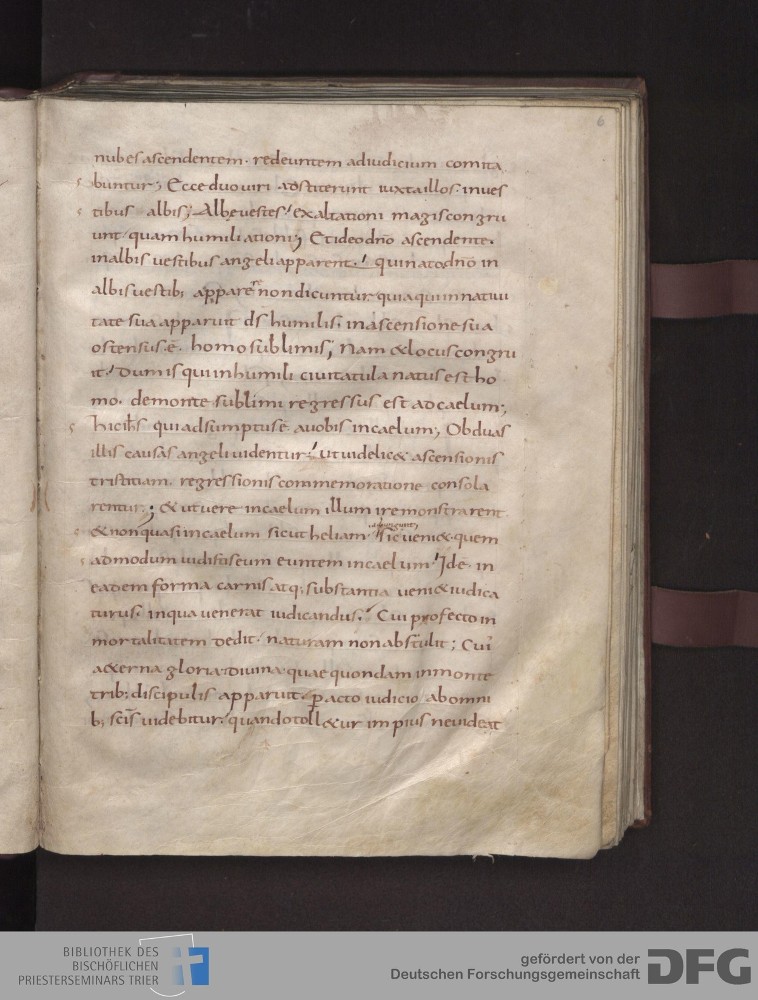 6
nubes ascendentem · redeuntem adiudicium comita
buntur; Ecce duo uiri adstiterunt iuxta illos · in ues
tibus albis; Albe uestes exaltationi magis congru
unt quam humiliationi; Et ideo dño ascendente ·
in albis uestibus angeli apparent · qui nato dño in
albis uestib; appare non dicuntur quia qui in natiui
tate sua apparuit ds humilis · in ascensione sua
ostensus · ē · homo sublimis; Nam & locus congru
it · dum is qui in humili ciuitatula natus est ho
mo · de monte sublimi regressus est ad caelum;
hic ihs qui adsumptus ē a uobis in caelum; Ob duas
illis causas angeli uidentur · ut uidelic& ascensionis
tristitiam · regressionis commemoratione consola
rentur; & ut uere in caelum illum ire monstrarent
& non quasi in caelum sicut heliam · Sic ueni& quem
admodum uidistis eum euntem in caelum · Id ē · in
eadem forma carnis atq; substantia ueni& iudica
turus · in qua uenerat iudicandus · Cui profecto in
mortalitatem dedit · naturam non abstulit; Cui
a&erna gloria diuina quae quondam in monte
trib; discipulis apparuit · peracto iudicio ab omni
b; scis uidebitur · quando toll&ur impius ne uideat
BIBLIOTHEK DES
BISCHÖFLICHEN
PRIESTERSEMINARS TRIER
gefördert von der
Deutschen Forschungsgemeinschaft
DFG